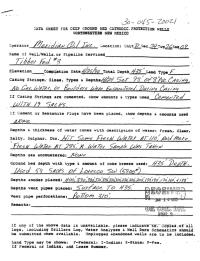 30-045-20021
DATA SHEET FOR DEEP GROUND BED CATHODIC PROTECTION WELLS
NORTHWESTERN NEW MEXICO
Operator Meridian Oil Inc. Location: Unit
Name of Well/Wells or Pipeline Serviced
#3
Elevation Completion Date Total Depth 435' Land Type F
Casing Strings, Sizes, Types & Depths
No Gas, Water, or Boulders Were Encountered During Casing.
If Casing Strings are cemented, show amounts & types used Cemented
With 19 Sacks.
If Cement or Bentonite Plugs have been placed, show depths & amounts used
None
Depths & thickness of water zones with description of water: Fresh, Clear,
Salty, Sulphur, Etc. Hit Some Fresh Water At 110' And More
Fresh Water At 295'. A Water Sample Was Taken.
Depths gas encountered: None
Ground bed depth with type & amount of coke breeze used: 435' Depth.
Used 54 Sacks Of Loresco SW
Depths anodes placed:
Depths vent pipes placed: Surface To 435'
Vent pipe perforations: Bottom 310'
Remarks:
If any of the above data is unavailable, please indicate so. Copies of all
logs, including Drillers Log, Water Analyses & Well Bore Schematics should
be submitted when available. Unplugged abandoned wells are to be included.
Land Type may be shown: F-Federal; I-Indian; S-State; P-Fee.
If Federal or Indian, add Lease Number.